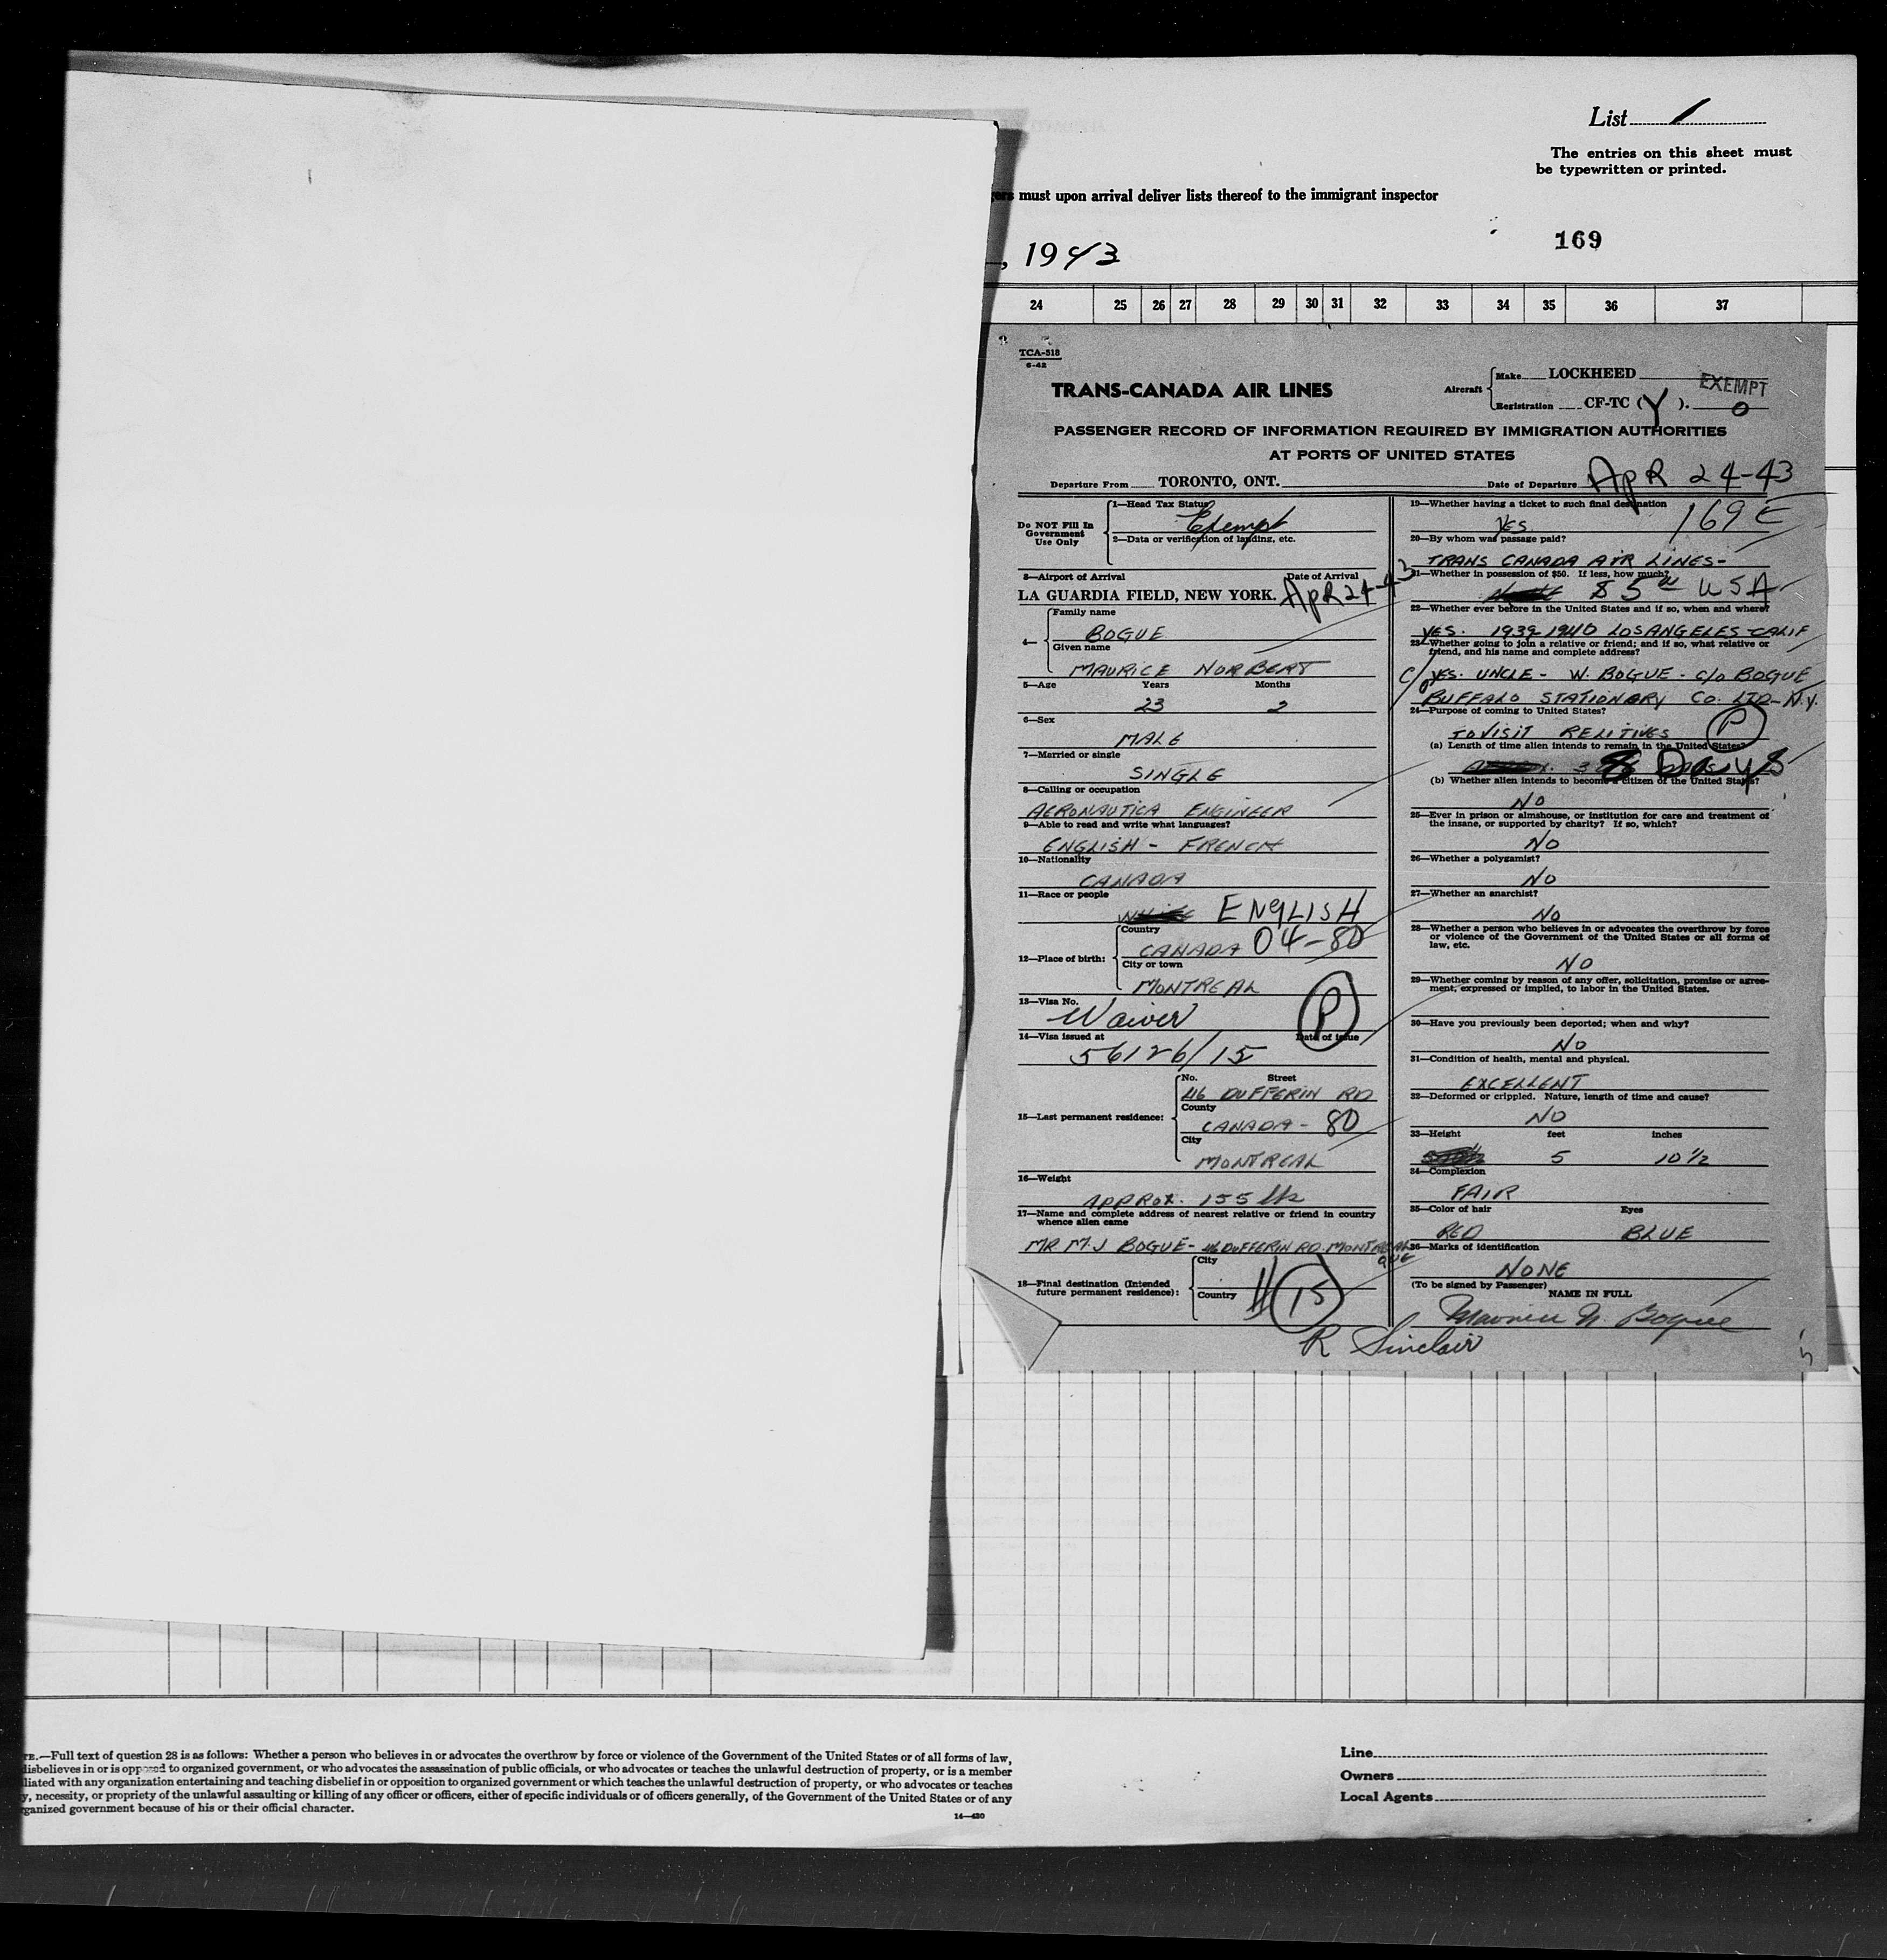 List 1
The entries on this sheet must
be typewritten or printed.
must upon arrival deliver lists thereof to the immigrant inspector
169
, 1943
24 25 26 27 28 29 30 31 32 33 34 35 36 37
TCA-518
6-42
TRANS-CANADA AIR LINES
Aircraft
Make LOCKHEED
EXEMPT
Registration CF-TC (Y). 0
PASSENGER RECORD OF INFORMATION REQUIRED BY IMMIGRATION AUTHORITIES
AT PORTS OF UNITED STATES
Departure From TORONTO, ONT. Date of Departure APR 24-43
Do NOT Fill In
Government
Use Only
1—Head Tax Status
Exempt
2—Data or verification of landing, etc.
3—Airport of Arrival Date of Arrival
LA GUARDIA FIELD, NEW YORK. APR 24-43
4—
Family name
BOGUE
Given name
MAURICE NORBERT
5—Age Years Months
23 2
6—Sex
MALE
7—Married or single
SINGLE
8—Calling or occupation
AERONAUTICA ENGINEER
9—Able to read and write what languages?
ENGLISH - FRENCH
10—Nationality
CANADA
11—Race or people
ENGLISH
12—Place of birth:
Country
CANADA 04-80
City or town
MONTREAL
13—Visa No.
Waiver P
14—Visa issued at Date of issue
56126/15
15—Last permanent residence:
No. Street
46 DUFFERIN RD
County
CANADA - 80
City
MONTREAL
16—Weight
APPROX. 155 lbs
17—Name and complete address of nearest relative or friend in country
whence alien came
MR M.J BOGUE - 46 DUFFERIN RD. MONTREAL
QUE
18—Final destination (Intended
future permanent residence):
City
Country
15
19—Whether having a ticket to such final destination
YES 169 E
20—By whom was passage paid?
TRANS CANADA AIR LINES-
21—Whether in possession of $50. If less, how much?
$5 USA
22—Whether ever before in the United States and if so, when and where?
YES. 1939 1940 LOS ANGELES CALIF
23—Whether going to join a relative or friend; and if so, what relative or
friend, and his name and complete address?
c/o YES. UNCLE - W. BOGUE - c/o BOGUE
BUFFALO STATIONARY CO. LTD - N.Y.
24—Purpose of coming to United States?
TO VISIT RELITIVES P
(a) Length of time alien intends to remain in the United States?
8 Days
(b) Whether alien intends to become a citizen of the United States?
NO
25—Ever in prison or almshouse, or institution for care and treatment of
the insane, or supported by charity? If so, which?
NO
26—Whether a polygamist?
NO
27—Whether an anarchist?
NO
28—Whether a person who believes in or advocates the overthrow by force
or violence of the Government of the United States or all forms of
law, etc.
NO
29—Whether coming by reason of any offer, solicitation, promise or agree-
ment, expressed or implied, to labor in the United States.
30—Have you previously been deported; when and why?
NO
31—Condition of health, mental and physical.
EXCELLENT
32—Deformed or crippled. Nature, length of time and cause?
NO
33—Height feet inches
5 10 1/2
34—Complexion
FAIR
35—Color of hair Eyes
RED BLUE
36—Marks of identification
NONE
(To be signed by Passenger)
NAME IN FULL
Maurice N. Bogue
R Sinclair
TE.—Full text of question 28 is as follows: Whether a person who believes in or advocates the overthrow by force or violence of the Government of the United States or of all forms of law,
disbelieves in or is opposed to organized government, or who advocates the assassination of public officials, or who advocates or teaches the unlawful destruction of property, or is a member
liated with any organization entertaining and teaching disbelief in or opposition to organized government or which teaches the unlawful destruction of property, or who advocates or teaches
y, necessity, or propriety of the unlawful assaulting or killing of any officer or officers, either of specific individuals or of officers generally, of the Government of the United States or of any
ganized government because of his or their official character.
14—420
Line
Owners
Local Agents